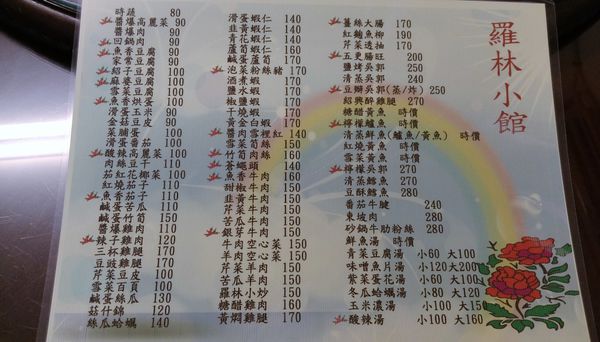 羅林小館
時蔬 80
醬爆高麗菜 90
醬爆肉 90
回鍋肉 90
魚香豆腐 90
家常豆腐 90
紹子豆腐 100
麻婆豆腐 100
雪菜豆腐 100
魚香烘蛋 100
滑蛋玉米 90
金菇豆皮 90
菜脯蛋 100
滑蛋番茄 100
酸辣高麗菜 100
肉絲豆干 110
茄紅花椰菜 100
紅燒茄子 110
魚香茄子 110
鹹蛋苦瓜 110
鹹蛋竹筍 150
雞肉 110
辣子雞肉 120
三杯雞腿 170
豆豉雞腿 170
芹菜豆皮 100
雪菜百頁 100
鹹蛋絲瓜 130
菇什錦 120
絲瓜蛤蠣 140
滑蛋蝦仁 140
韭黃蝦仁 140
青花蝦仁 140
蘆筍蝦仁 160
鹹蛋蘆筍 150
泡菜粉絲豬 170
酒煮蝦 170
鹽水蝦 170
椒鹽蝦 170
干燒蝦 170
黃金白蝦 170
醬肉雪裡紅 140
雪菜筍絲 150
竹筍肉絲 160
蒼蠅頭 140
魚香牛肉 160
甜椒牛肉 150
韭黃牛肉 150
芹菜牛肉 150
苦瓜牛肉 150
銀芽牛肉 150
牛肉空心菜 150
羊肉空心菜 150
芹菜羊肉 150
苦瓜羊肉 150
羅林小炒 150
糖醋雞肉 160
黃燜雞腿 170
薑絲大腸 170
紅麴魚柳 190
芹菜透抽 170
五更腸旺 200
鹽烤吳郭 240
清蒸吳郭 240
豆瓣吳郭(蒸/炸) 250
紹興醉雞腿 270
糖醋黃魚 時價
檸檬鱸魚 時價
清蒸鮮魚(鱸魚/黃魚) 時價
紅燒黃魚 時價
雪菜黃魚 時價
檸檬吳郭 270
清蒸鱈魚 280
豆酥鱈魚 280
番茄牛腱 240
東坡肉 280
砂鍋牛肋粉絲 280
鮮魚湯 時價
青菜豆腐湯 小60 大100
味噌魚片湯 小120大200
紫菜蛋花湯 小60 大100
冬瓜蛤蠣湯 小80 大120
玉米濃湯 小100 大150
酸辣湯 小100 大160